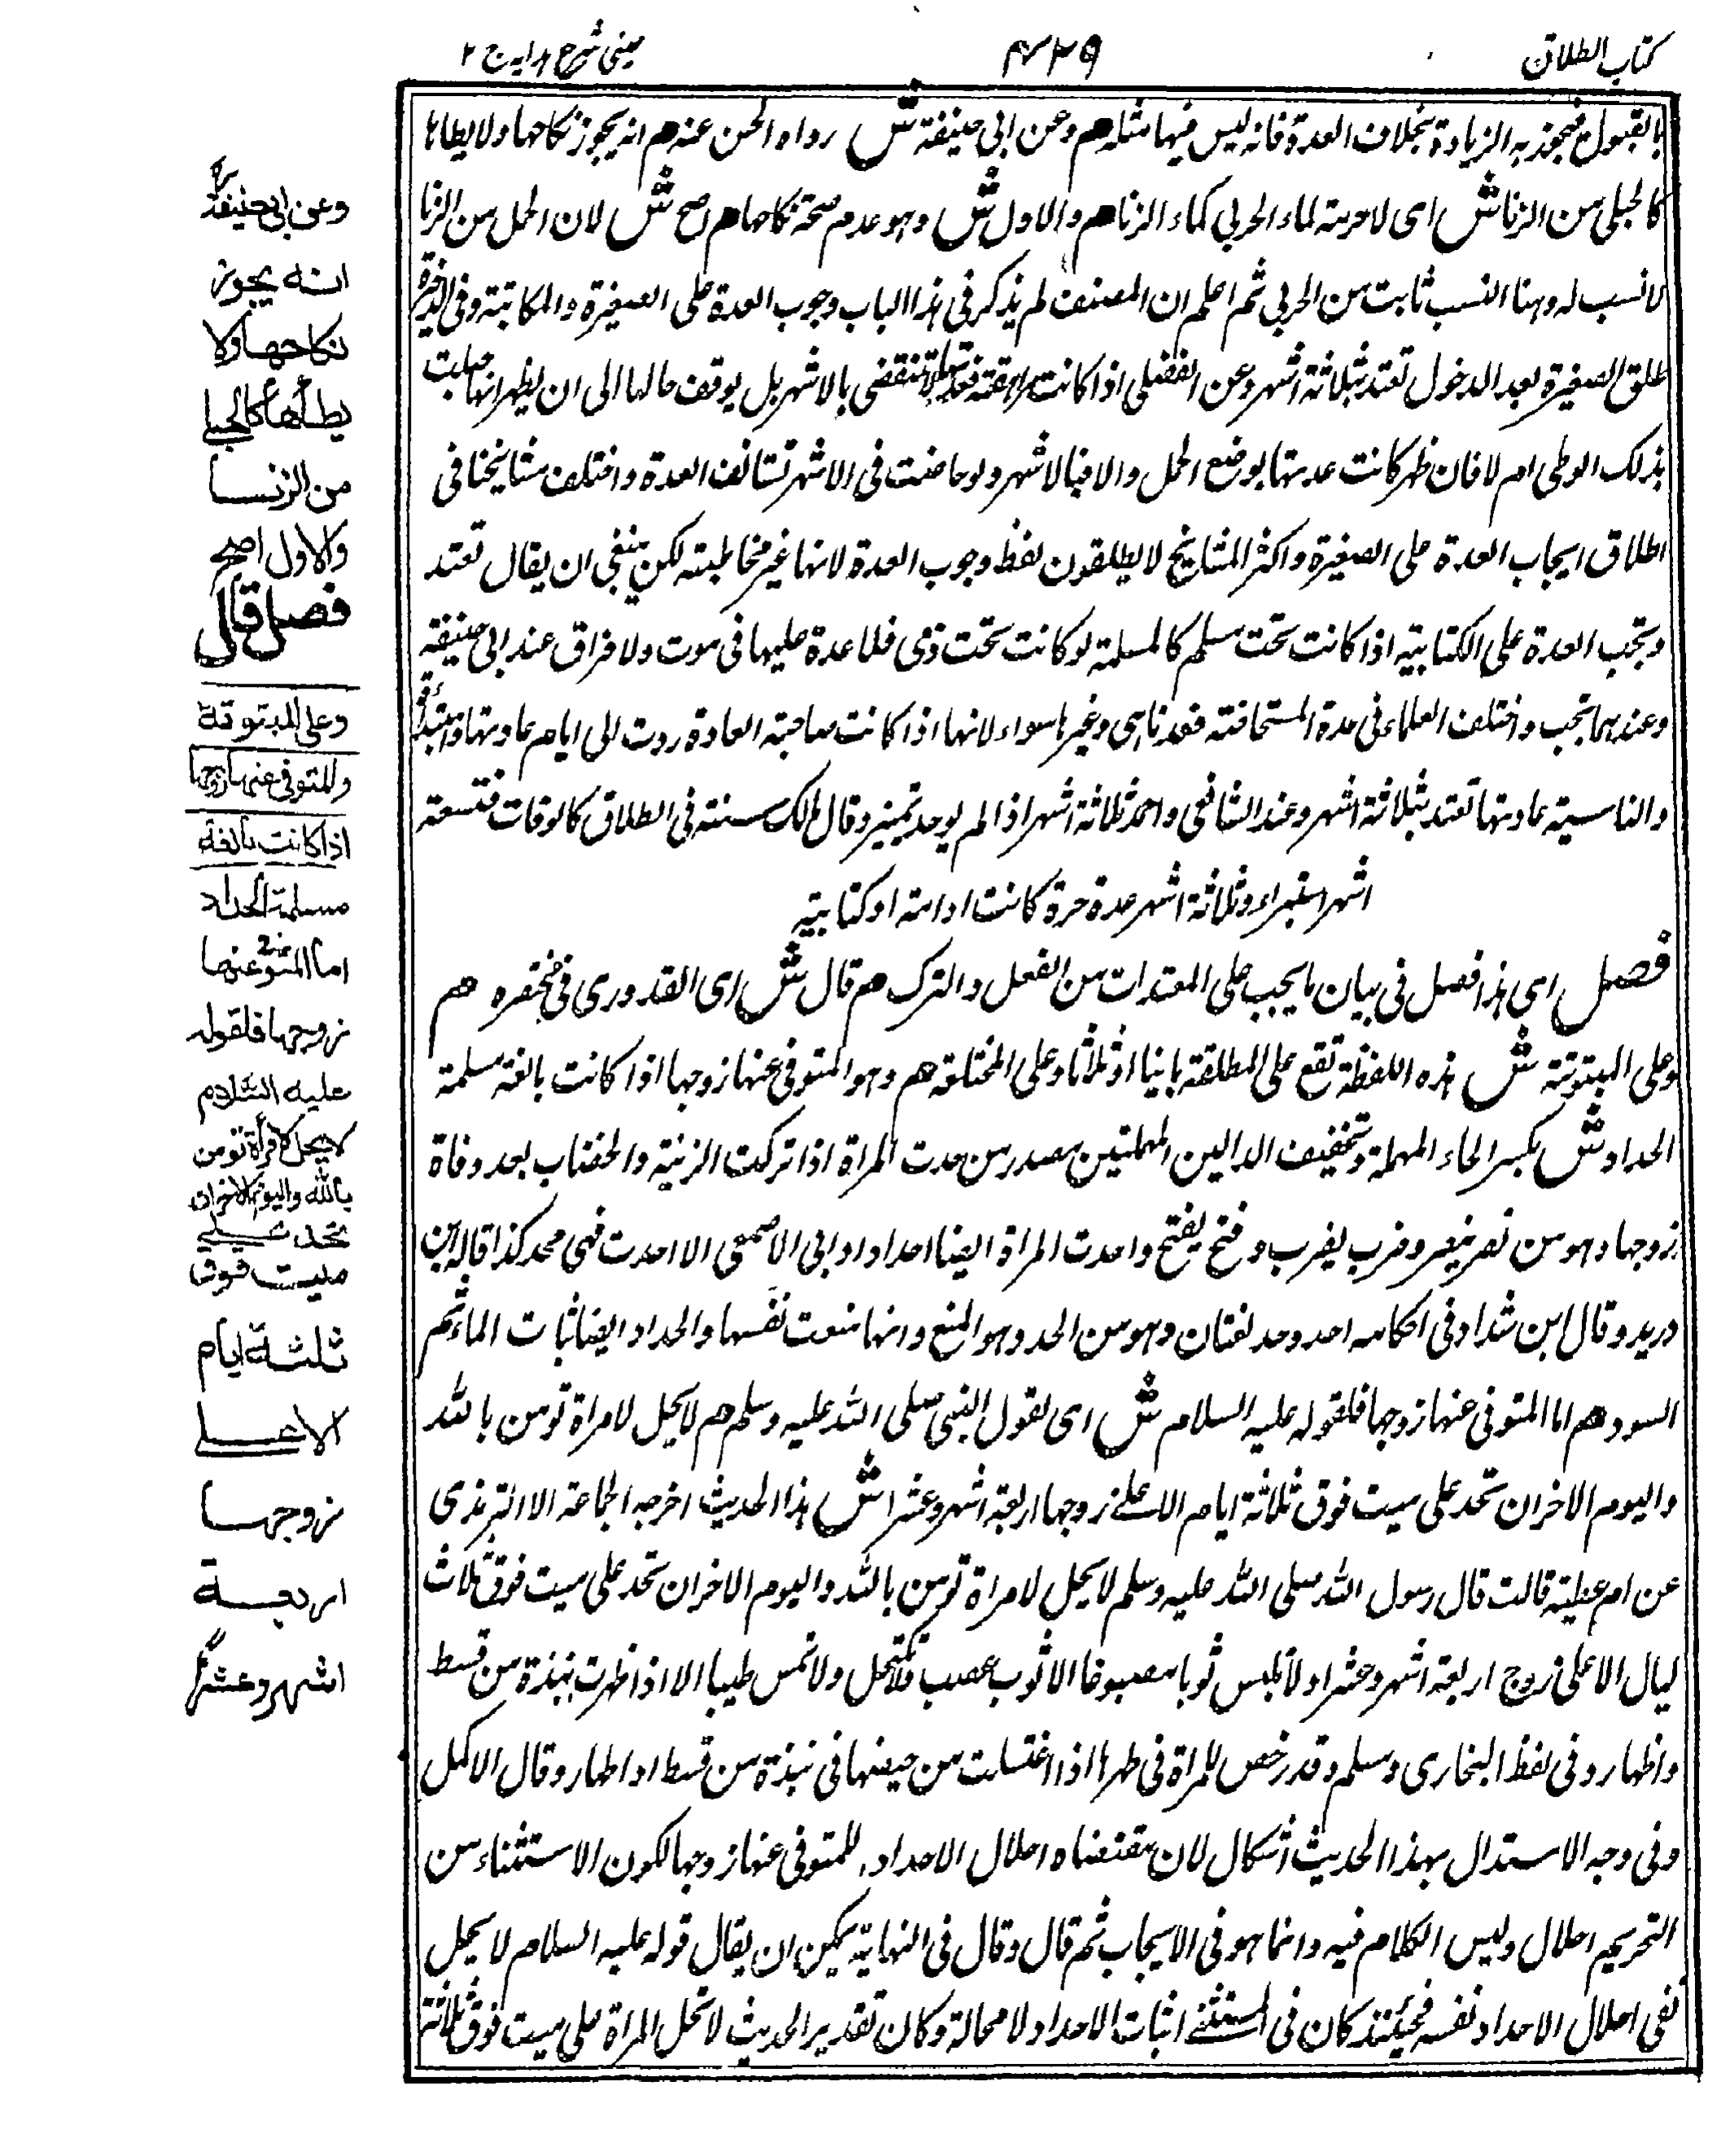 كتاب الطلاق
۴۲۹
عینی شرح ہدایہ ج ۲
بالقبول فيجوز به الزيادة بخلاف العدة فانه ليس فيها مثله هم وعن ابى حنيفة ش رواه الحسن عنه هم انه يجوز نكاحها ولا يطاها
كالحبلى من الزنا ش اى لا حرمة لماء الحربى كماء الزنا هم والاول ش وهو عدم صحة نكاحها هم اصح ش لان الحمل من الزنا
لا نسب له وهنا النسب ثابت من الحربى ثم اعلم ان المصنف لم يذكر فى هذا الباب وجوب العدة على الصغيرة والمكاتبة وفى الذخيرة
طلق الصغيرة بعد الدخول تعتد بثلاثة اشهر وعن الفضلى اذا كانت مراهقة فعدتها لا تنقضى بالاشهر بل يوقف حالها الى ان يظهر انها حبلت
بذلك الوطى ام لا فان ظهر كانت عدتها بوضع الحمل والا فبالاشهر ولو حاضت فى الاشهر تستانف العدة واختلف مشايخنا فى
اطلاق ايجاب العدة على الصغيرة واكثر المشايخ لا يطلقون لفظ وجوب العدة لانها غير مخاطبة لكن ينبغى ان يقال تعتد
وتجب العدة على الكتابية اذا كانت تحت مسلم كالمسلمة لو كانت تحت ذمى فلا عدة عليها فى موت ولا فراق عند ابى حنيفة
وعندهما تجب واختلف العلماء فى عدة المستحاضة فعندنا هى وغيرها سواء لانها اذا كانت صاحبة العادة ردت الى ايام عادتها والمبتدأة
والناسية عادتها تعتد بثلاثة اشهر وعند الشافعى واحمد ثلاثة اشهر اذا لم يوجد تميز وقال مالك سنة فى الطلاق كالوفات فتسعة
اشهر استبراء وثلاثة اشهر عدة حرة كانت او امة او كتابية
فصل اى هذا فصل فى بيان ما يجب على المعتدات من الفعل والترك هم قال ش اى القدورى فى مختصره هم
وعلى المبتوتة ش هذه اللفظة تقع على المطلقة باينا او ثلاثا وعلى المختلعة هم وهو المتوفى عنها زوجها اذا كانت بالغة مسلمة
الحداد ش بكسر الحاء المهملة وتخفيف الدالين المهملتين مصدر من حدت المراة اذا تركت الزينة والخضاب بعد وفاة
زوجها وهو من نصر ينصر وضرب يضرب وفتح يفتح واحدت المراة ايضا احدادا وابى الاصمعى الا احدت فهى محد كذا قاله ابن
دريد وقال ابن شداد فى احكامه احد وحد لغتان وهو من الحد وهو المنع وانها منعت نفسها والحداد ايضا ثبات الماء ثم
السود هم اما المتوفى عنها زوجها فلقوله عليه السلام ش اى لقول النبى صلى الله عليه وسلم هم لا يحل لامراة تومن بالله
واليوم الاخر ان تحد على ميت فوق ثلاثة ايام الا على زوجها اربعة اشهر وعشرا ش هذا الحديث اخرجه الجماعة الا الترمذى
عن ام عطية قالت قال رسول الله صلى الله عليه وسلم لا يحل لامراة تومن بالله واليوم الاخر ان تحد على ميت فوق ثلاث
ليال الا على زوج اربعة اشهر وعشرا ولا تلبس ثوبا مصبوغا الا ثوب عصب ولا تكتحل ولا تمس طيبا الا اذا طهرت نبذة من قسط
واظهار وفى لفظ البخارى ومسلم وقد رخص للمراة فى طهرها اذا اغتسلت من حيضها فى نبذة من قسط او اظهار وقال الاكمل
وفى وجه الاستدلال بهذا الحديث اشكال لان مقتضاه احلال الاحداد للمتوفى عنها زوجها لكون الاستثناء من
التحريم احلال وليس الكلام فيه وانما هو فى الايجاب ثم قال وقال فى النهاية يمكن ان يقال قوله عليه السلام لا يحل
نفى احلال الاحداد نفسه فحينئذ كان فى المستثنى اثبات الاحداد لا محالة وكان تقدير الحديث لا تحل المراة على ميت فوق ثلاثة
وعن ابى حنيفة رہ
انه يجوز
نكاحها ولا
يطأها كالحبلى
من الزنا
والاول اصح
فصل قال
وعلى المبتوتة
والمتوفى عنها زوجها
اذا كانت بالغة
مسلمة الحداد
اما المتوفى عنها
زوجها فلقوله
عليه السلام
لا يحل لامرأة تومن
بالله واليوم الاخر ان
تحد على
ميت فوق
ثلثة ايام
الا على
زوجها
اربعة
اشهر وعشرا